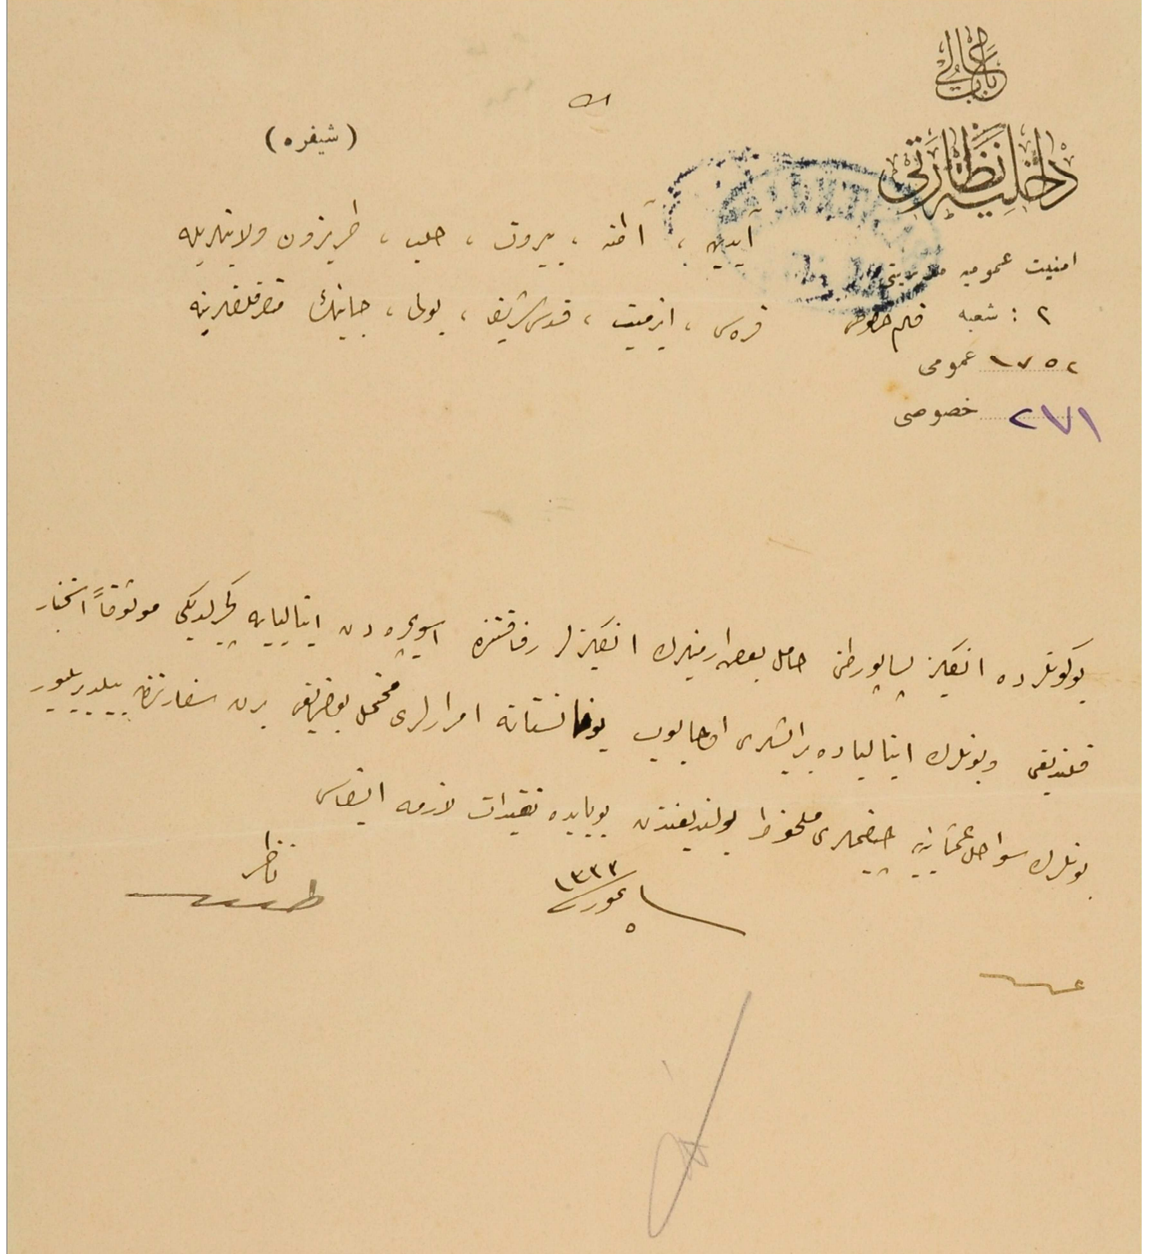 باب عالی
داخلیه نظارتی
امنیت عمومیه مدیریتی
شعبه : ٢
قلم خصوص
عمومی ١٧٥٢
خصوصی ٢٧١
(شیفره)
آیدین ، آطنه ، بیروت ، حلب ، طربزون ولایتلریله
قره‌سی ، ازمیت ، قدس شریف ، بولی ، جانیك متصرفلقلرینه
بوكونلرده انكلیز پساپورطنی حامل بعض ارمنیلرك انكلیزلر رفاقتنده اسویچره‌دن ایتالیایه كچیرلدیكی موثوقاً استخبار
قلندیغی وبونلرك ایتالیاده برایشلری اولمایوب یونانستانه امرارلری محتمل بولندیغی برن سفارتندن بیلدیریلیور
بونلرك سواحل عثمانیه‌یه چیقملری ملحوظ بولندیغندن بوبابده تقیدات لازمه ایفاسی
١٣٣٣
ناظر
طلعت